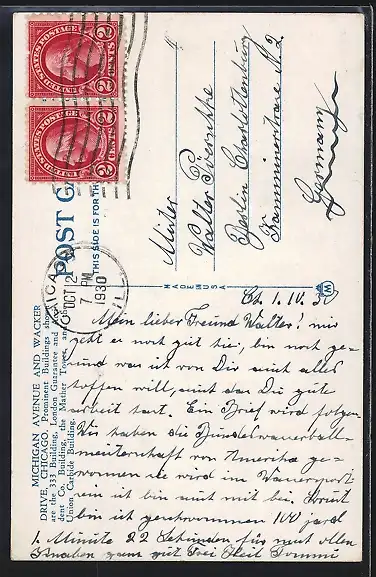 UNITED STATES POSTAGE
2 CENTS 2
UNITED STATES POSTAGE
2 CENTS 2
CHICAGO
OCT 2
7 PM
1930
ILL
POST CA
THIS SIDE IS FOR TH
MICHIGAN AVENUE AND WACKER
DRIVE, CHICAGO. Prominent Buildings shown
are the 333 Building, London Guarantee and
dent Co. Building, the Mather Tower, and
Union Carbide Building.
MADE IN USA
Mister
Walter
Berlin Charlottenburg
N. 2
Germany
Ch. 1. IV. 30
Mein lieber Freund Walter! mir
geht es noch gut hier, bin noch ge-
sund was ich von Dir auch alles
hoffen will, und das Du gute
Arbeit hast. Ein Brief wird folgen
Wir haben die Bundeswasserball-
meisterschaft von Amerika ge-
wonnen
bin mit bei.
bin ich geschwommen 100 yard
1. Minute 22 Sekunden für mut allen
Knaben ganz gut Frei Heil